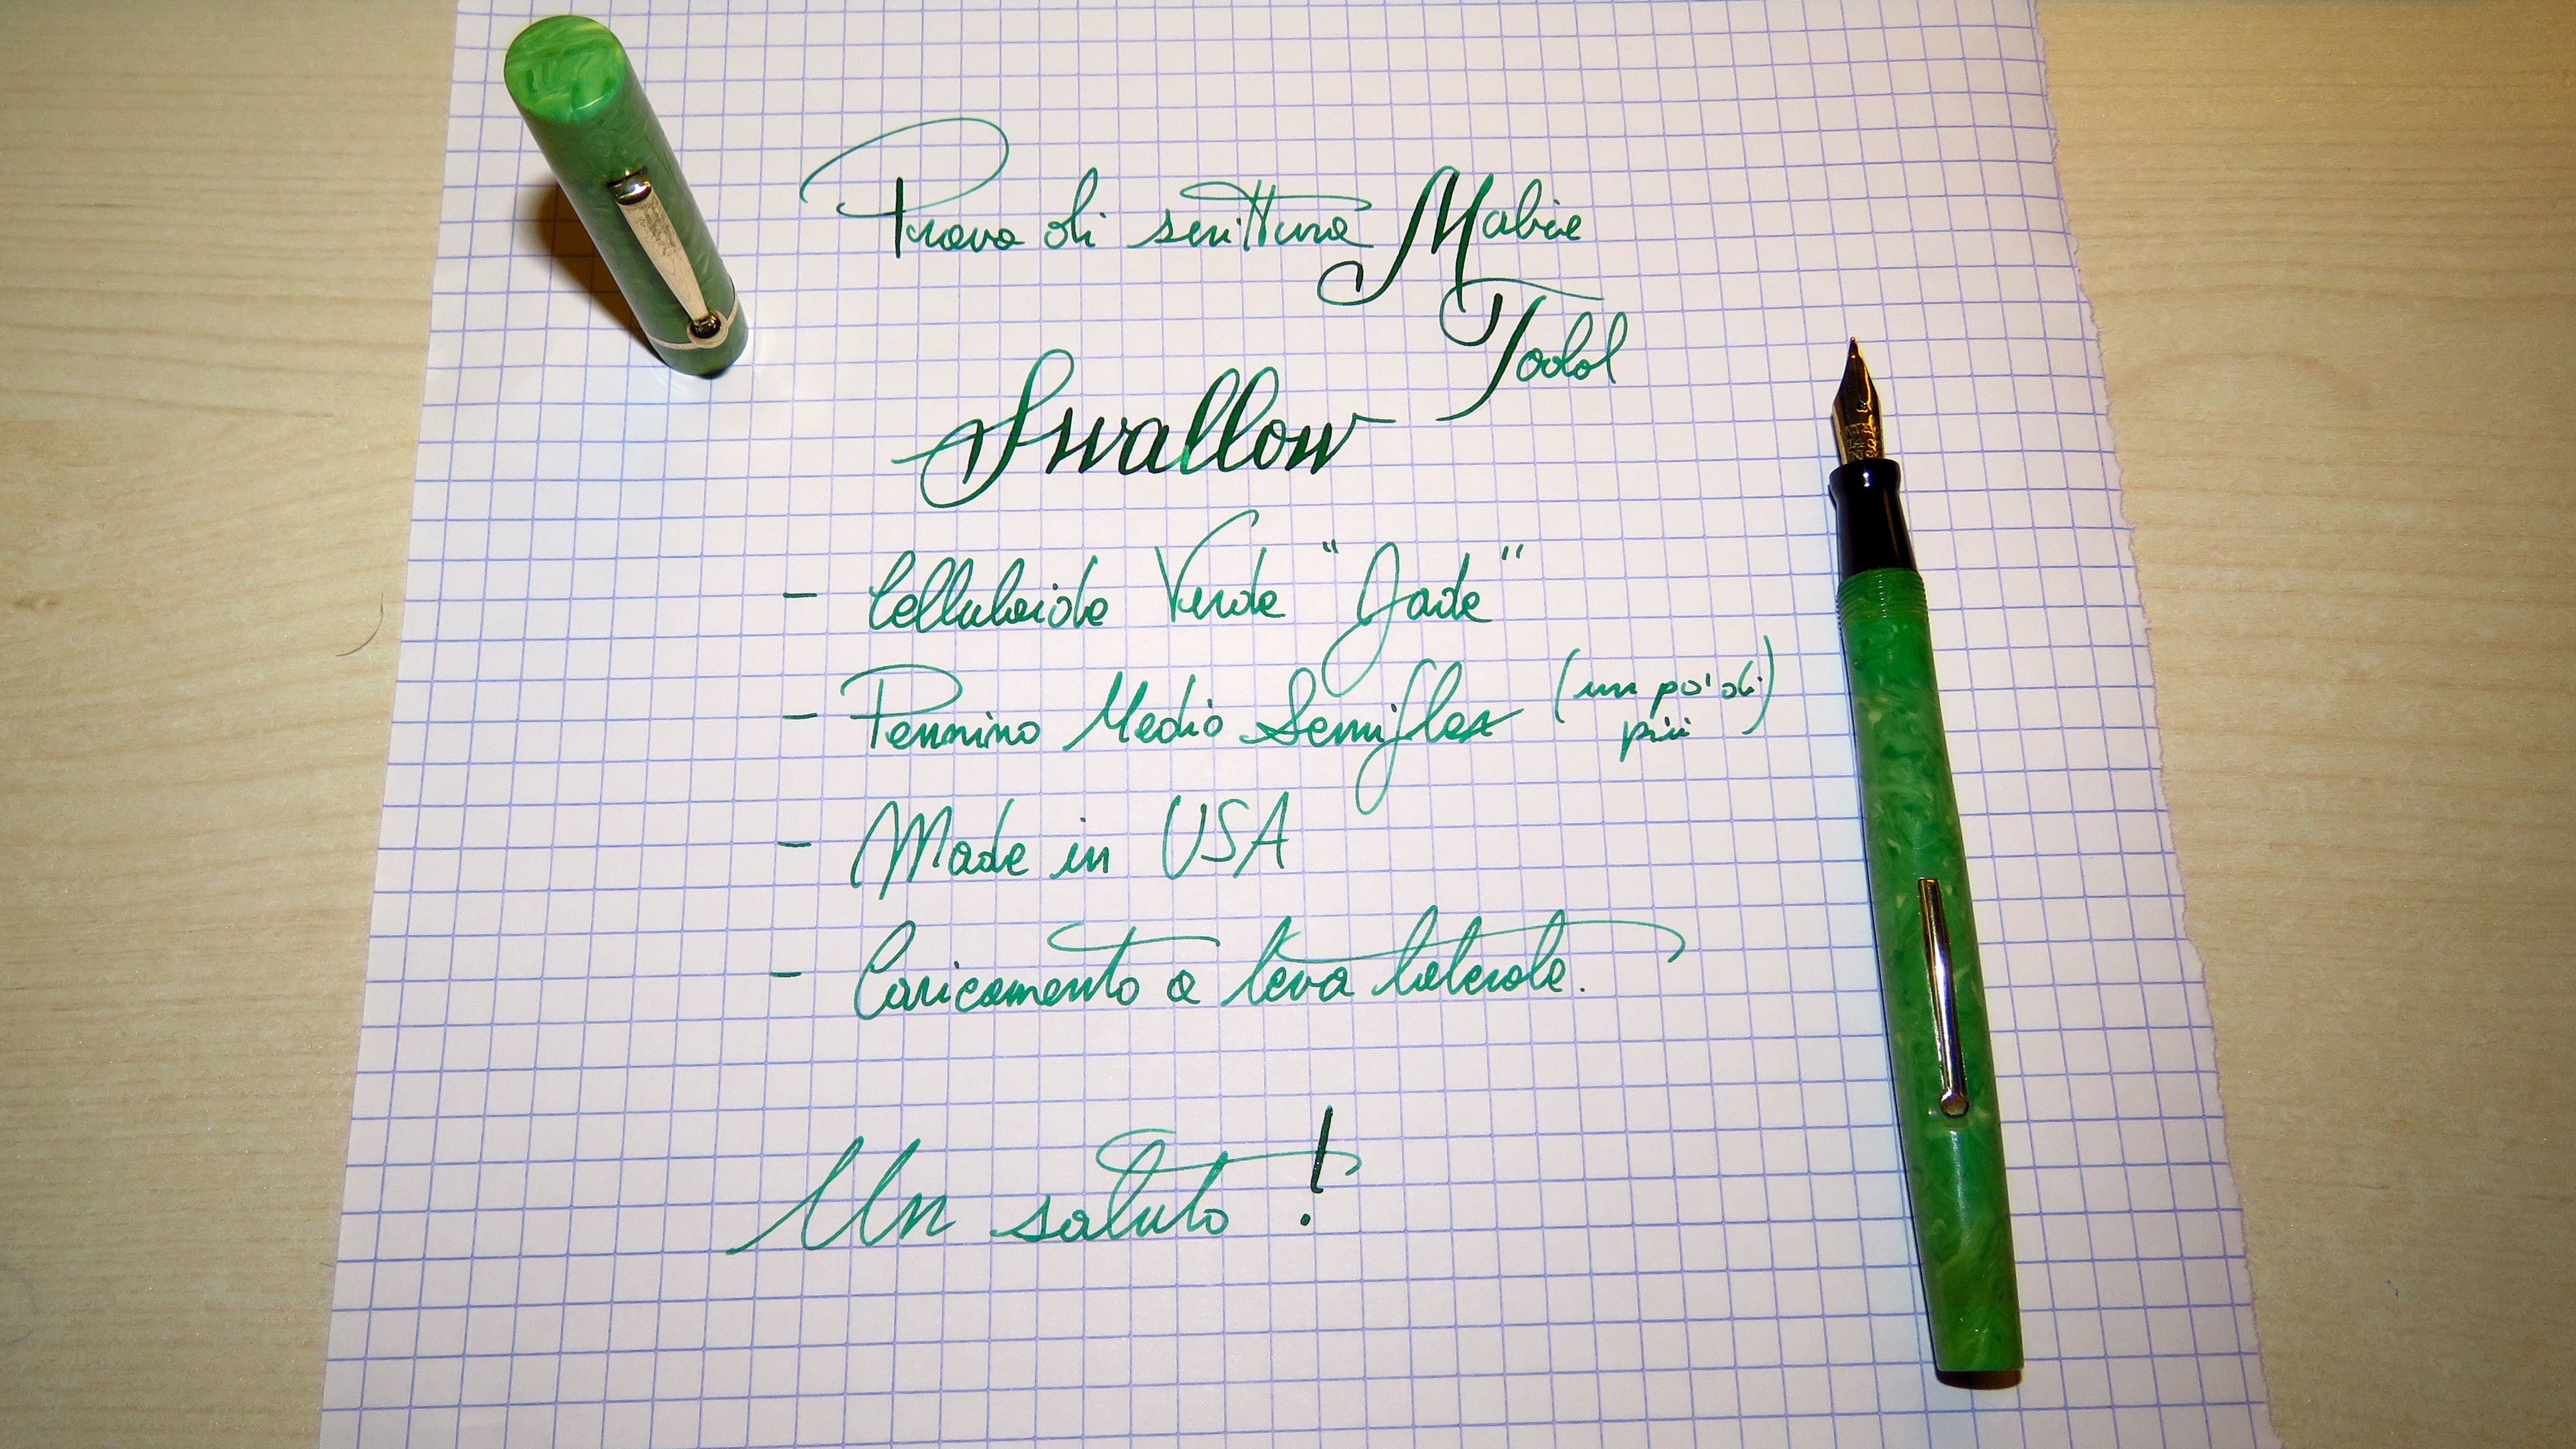 Prova di scrittura Mabie
Todd
Swallow
- Celluloide Verde "Jade"
- Pennino Medio Semiflex (un po' di
più)
- Made in USA
- Caricamento a leva laterale.
Un saluto!